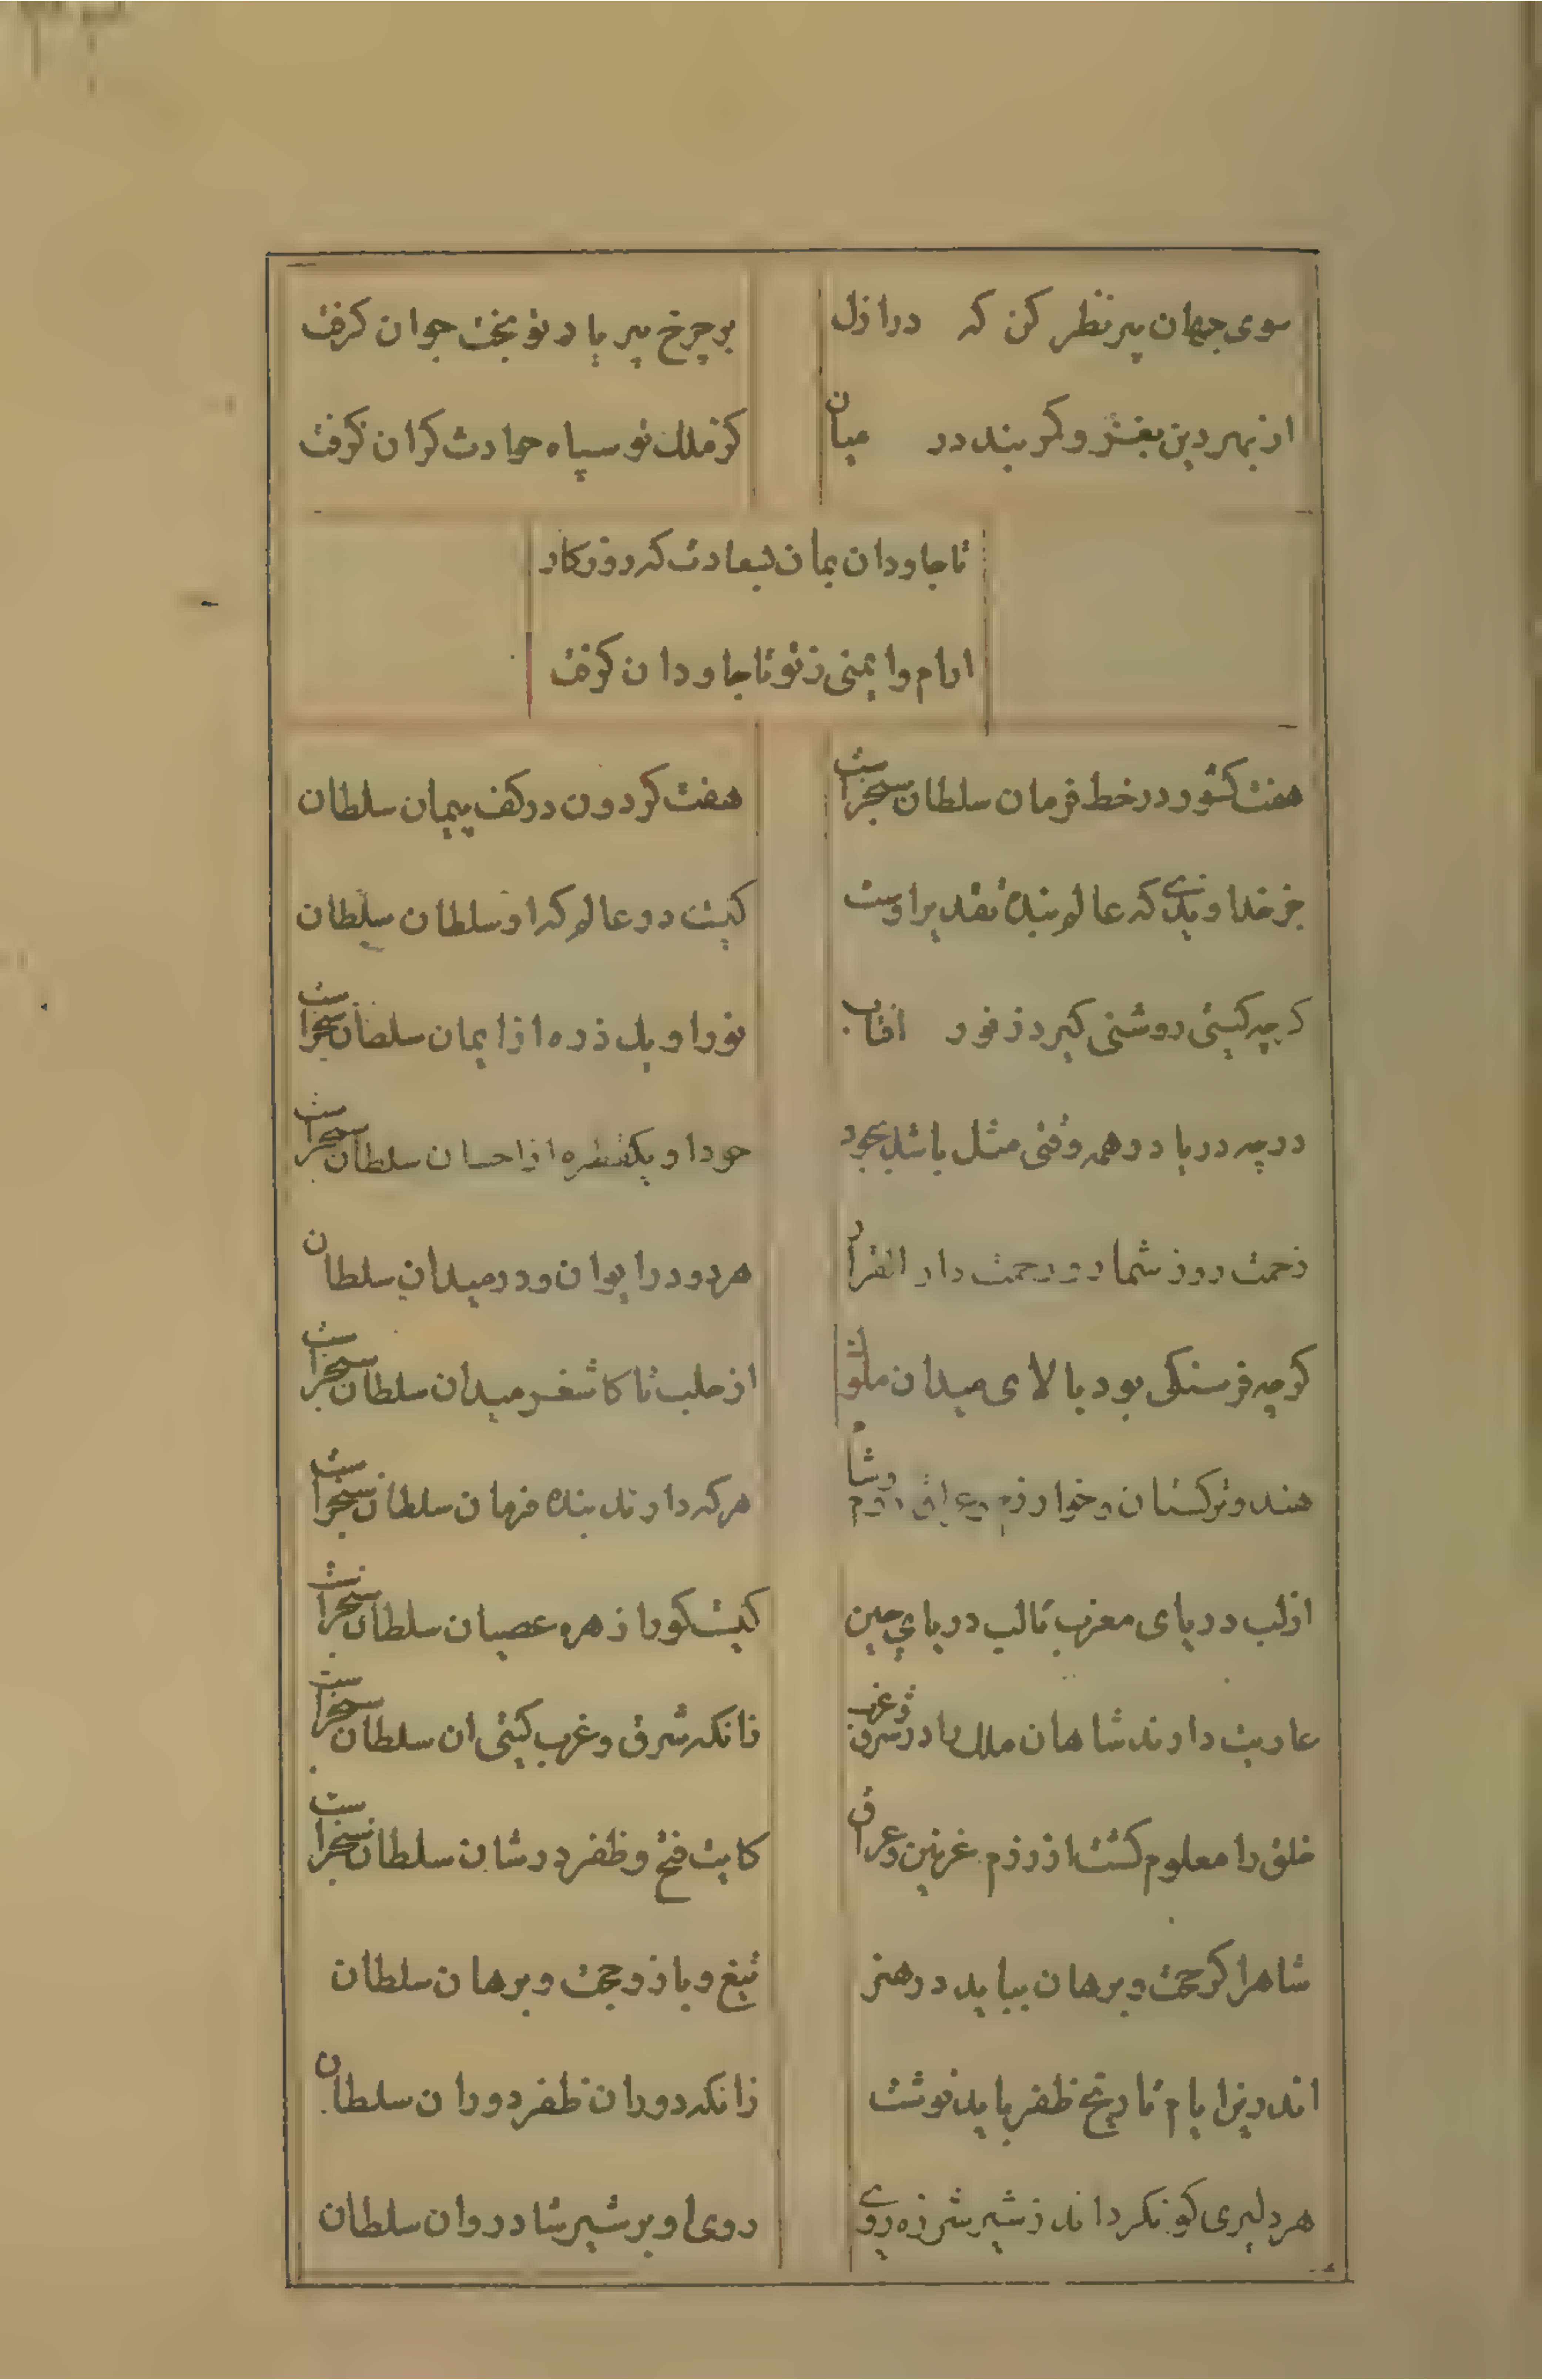 سوی جهان پیر نظر کن که در ازل
بر چرخ پیر یاد تو بخت جوان کرفت
از بهر دین و کمر بند در میان
کز ملک تو سپاه حوادث کران کرفت
تا جاودان بمان بسعادت که روزکار
ارام و ایمنی ز تو تا جاودان کرفت
هفت کشور در خط فرمان سلطان سنجراست
هفت کردون در کف پیمان سلطان
جز خداوندی که عالم بنده تقدیر اوست
کیست در عالم که او سلطان سلطان
کرچه کیتی روشنی کیرد ز نور افتاب
نور او یک ذره از ایمان سلطان سنجراست
درچه دریا در همه وقتی مثل باشد بجود
جود او یکقطره از احسان سلطان سنجراست
زحمت روز شمار و رحمت دار القرار
هر دو در ایوان و در میدان سلطان
کرچه فرسنکی بود بالای میدان ملوک
از حلب تا کاشغر میدان سلطان سنجراست
هند و ترکستان و خوارزم و عراق و روم و شام
هر که دارند بنده فرمان سلطان سنجراست
از لب دریای مغرب تا لب دریای چین
کیست کورا زهره عصیان سلطان سنجراست
عاریت دارند شاهان ملک را در شرق و غرب
زانکه شرق و غرب کیتی ان سلطان سنجراست
خلق را معلوم کشت از رزم غزنین و عراق
کایت فتح و ظفر در شان سلطان سنجراست
شاهرا کر حجت و برهان بباید در هنر
تیغ و بازو حجت و برهان سلطان
اندرین ایام تاریخ ظفر باید نوشت
زانکه دوران ظفر دوران سلطان
هر دلیری کو نکرداند ز شیر شرزه روی
روی او بر شیر شادروان سلطان